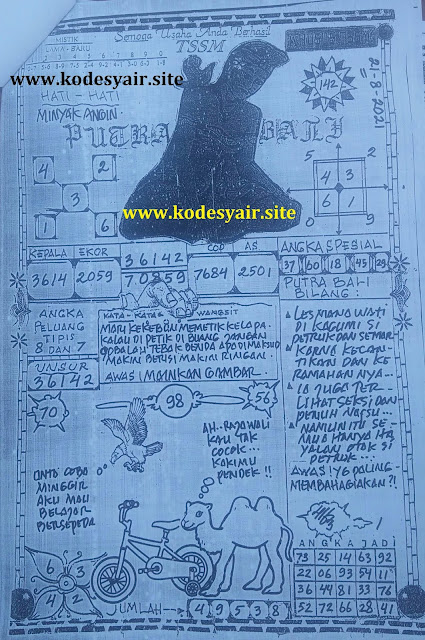 MISTIK
Semoga Usaha Anda Berhasil
TSSM
www.kodesyair.site
HATI - HATI
MINYAK ANGIN
PUTRA BALI
142
21-8-2021
4 2
3
1 6
5 2
4 3
6 1
0 9
www.kodesyair.site
KEPALA EKOR
3614 2059
36142
70859
COD AS
7684 2501
ANGKA SPESIAL
37 60 18 45 29
ANGKA
PELUANG
TIPIS
8 DAN 7
UNSUR
36142
KATA - KATA WANGSIT
MARI KEKEBUN MEMETIK KELAPA
KALAU DI PETIK DI BUANG JANGAN
COBALAH TEBAK BENDA APA DIMAKSUD
MAKIN BERISI MAKIN RINGAN
AWAS! MAINKAN GAMBAR
PUTRA BALI
BILANG:
LESMANAWATI
DI KAGUMI SI
PETRUK DAN SEMAR
KARNA KECAN-
TIKAN DAN KE
RAMAHAN NYA...
IA JUGA TER-
LIHAT SEKSI DAN
PENUH NAFSU...
NAMUN ITU SE-
MUA HANYA HA
YALAN OTOK SI
PETRUK...
AWAS! YG PALING
MEMBAHAGIAKAN?!
70
98
56
AH.. RAJAWALI
KAU TAK
COCOK...
KAKIMU
PENDEK !!
ONTO COBA
MINGGIR
AKU MAU
BELAJAR
BERSEPEDA
6 3
4 2
JUMLAH 4 9 5 3 8
ANGKA JADI
73 25 14 63 92
22 06 93 54 11
36 44 81 33 76
52 72 66 28 41